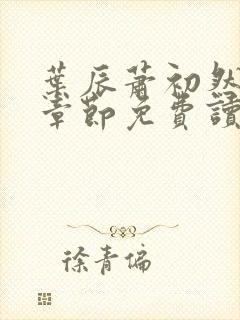 葉辰蕭初然
章節免費讀
徐青偏